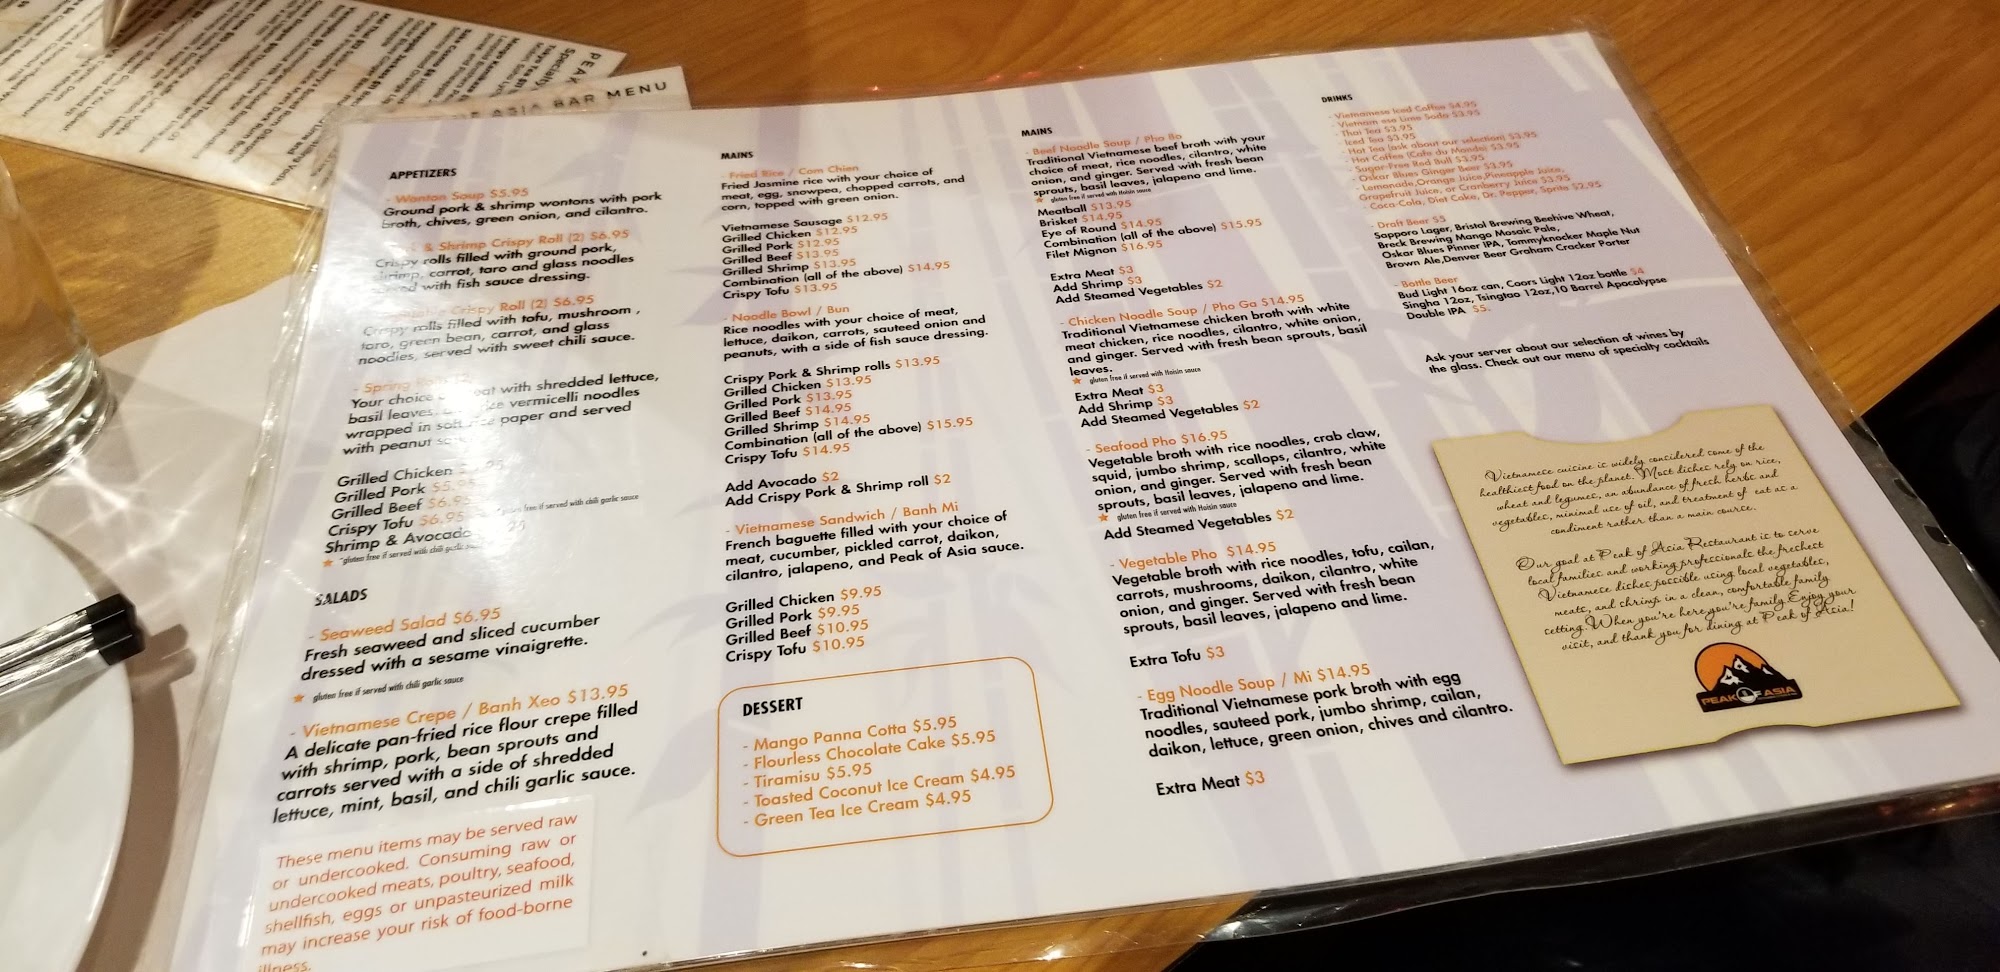 PEAK
ASIA BAR MENU
APPETIZERS
- Wonton Soup $5.95
Ground pork & shrimp wontons with pork
broth, chives, green onion, and cilantro.
& Shrimp Crispy Roll (2) $6.95
Crispy rolls filled with ground pork,
shrimp, carrot, taro and glass noodles
served with fish sauce dressing.
Crispy Roll (2) $6.95
Crispy rolls filled with tofu, mushroom ,
taro, green bean, carrot, and glass
noodles, served with sweet chili sauce.
- Spring
Your choice with shredded lettuce,
basil leaves, vermicelli noodles
wrapped in soft rice paper and served
with peanut
Grilled Chicken
Grilled Pork
Grilled Beef $6.95
Crispy Tofu $6.95
free if served with chili garlic sauce
Shrimp & Avocado
*gluten free if served with chili garlic
SALADS
- Seaweed Salad $6.95
Fresh seaweed and sliced cucumber
dressed with a sesame vinaigrette.
gluten free if served with chili garlic sauce
- Vietnamese Crepe / Banh Xeo $13.95
A delicate pan-fried rice flour crepe filled
with shrimp, pork, bean sprouts and
carrots served with a side of shredded
lettuce, mint, basil, and chili garlic sauce.
These menu items may be served raw
or undercooked. Consuming raw or
undercooked meats, poultry, seafood,
shellfish, eggs or unpasteurized milk
may increase your risk of food-borne
illness.
MAINS
- Fried Rice / Com Chien
Fried Jasmine rice with your choice of
meat, egg, snowpea, chopped carrots, and
corn, topped with green onion.
Vietnamese Sausage $12.95
Grilled Chicken $12.95
Grilled Pork $12.95
Grilled Beef $13.95
Grilled Shrimp $13.95
Combination (all of the above) $14.95
Crispy Tofu $13.95
- Noodle Bowl / Bun
Rice noodles with your choice of meat,
lettuce, daikon, carrots, sauteed onion and
peanuts, with a side of fish sauce dressing.
Crispy Pork & Shrimp rolls $13.95
Grilled Chicken $13.95
Grilled Pork $13.95
Grilled Beef $14.95
Grilled Shrimp $14.95
Combination (all of the above) $15.95
Crispy Tofu $14.95
Add Avocado $2
Add Crispy Pork & Shrimp roll $2
- Vietnamese Sandwich / Banh Mi
French baguette filled with your choice of
meat, cucumber, pickled carrot, daikon,
cilantro, jalapeno, and Peak of Asia sauce.
Grilled Chicken $9.95
Grilled Pork $9.95
Grilled Beef $10.95
Crispy Tofu $10.95
DESSERT
- Mango Panna Cotta $5.95
- Flourless Chocolate Cake $5.95
- Tiramisu $5.95
- Toasted Coconut Ice Cream $4.95
- Green Tea Ice Cream $4.95
MAINS
- Beef Noodle Soup / Pho Bo
Traditional Vietnamese beef broth with your
choice of meat, rice noodles, cilantro, white
onion, and ginger. Served with fresh bean
sprouts, basil leaves, jalapeno and lime.
gluten free if served with Hoisin sauce
Meatball $13.95
Brisket $14.95
Eye of Round $14.95
Combination (all of the above) $15.95
Filet Mignon $16.95
Extra Meat $3
Add Shrimp $3
Add Steamed Vegetables $2
- Chicken Noodle Soup / Pho Ga $14.95
Traditional Vietnamese chicken broth with white
meat chicken, rice noodles, cilantro, white onion,
and ginger. Served with fresh bean sprouts, basil
leaves.
gluten free if served with Hoisin sauce
Extra Meat $3
Add Shrimp $3
Add Steamed Vegetables $2
- Seafood Pho $16.95
Vegetable broth with rice noodles, crab claw,
squid, jumbo shrimp, scallops, cilantro, white
onion, and ginger. Served with fresh bean
sprouts, basil leaves, jalapeno and lime.
gluten free if served with Hoisin sauce
Add Steamed Vegetables $2
- Vegetable Pho $14.95
Vegetable broth with rice noodles, tofu, cailan,
carrots, mushrooms, daikon, cilantro, white
onion, and ginger. Served with fresh bean
sprouts, basil leaves, jalapeno and lime.
Extra Tofu $3
- Egg Noodle Soup / Mi $14.95
Traditional Vietnamese pork broth with egg
noodles, sauteed pork, jumbo shrimp, cailan,
daikon, lettuce, green onion, chives and cilantro.
Extra Meat $3
DRINKS
- Vietnamese Iced Coffee $4.95
- Vietnam ese Lime Soda $3.95
- Thai Tea $3.95
- Iced Tea $3.95
- Hot Tea (ask about our selection) $3.95
- Hot Coffee (Cafe du Monde) $3.95
- Sugar-Free Red Bull $3.95
- Oskar Blues Ginger Beer $3.95
- Lemonade,Orange Juice,Pineapple Juice,
Grapefruit Juice, or Cranberry Juice $3.95
- Coca-Cola, Diet Coke, Dr. Pepper, Sprite $2.95
- Draft Beer $5
Sapporo Lager, Bristol Brewing Beehive Wheat,
Breck Brewing Mango Mosaic Pale,
Oskar Blues Pinner IPA, Tommyknocker Maple Nut
Brown Ale,Denver Beer Graham Cracker Porter
- Bottle Beer
Bud Light 16oz can, Coors Light 12oz bottle $4
Singha 12oz, Tsingtao 12oz,10 Barrel Apocalypse
Double IPA $5.
Ask your server about our selection of wines by
the glass. Check out our menu of specialty cocktails
Vietnamese cuisine is widely considered some of the
healthiest food on the planet. Most dishes rely on rice,
wheat and legumes, an abundance of fresh herbs and
vegetables, minimal use of oil, and treatment of eat as a
condiment rather than a main cource.
Our goal at Peak of Asia Restaurant is to serve
local families and working professionals the freshest
Vietnamese dishes possible using local vegetables,
meats, and shrimp in a clean, comfortable family
setting.When you're here,you're family.Enjoy your
visit, and thank you for dining at Peak of Asia!
PEAK OF ASIA